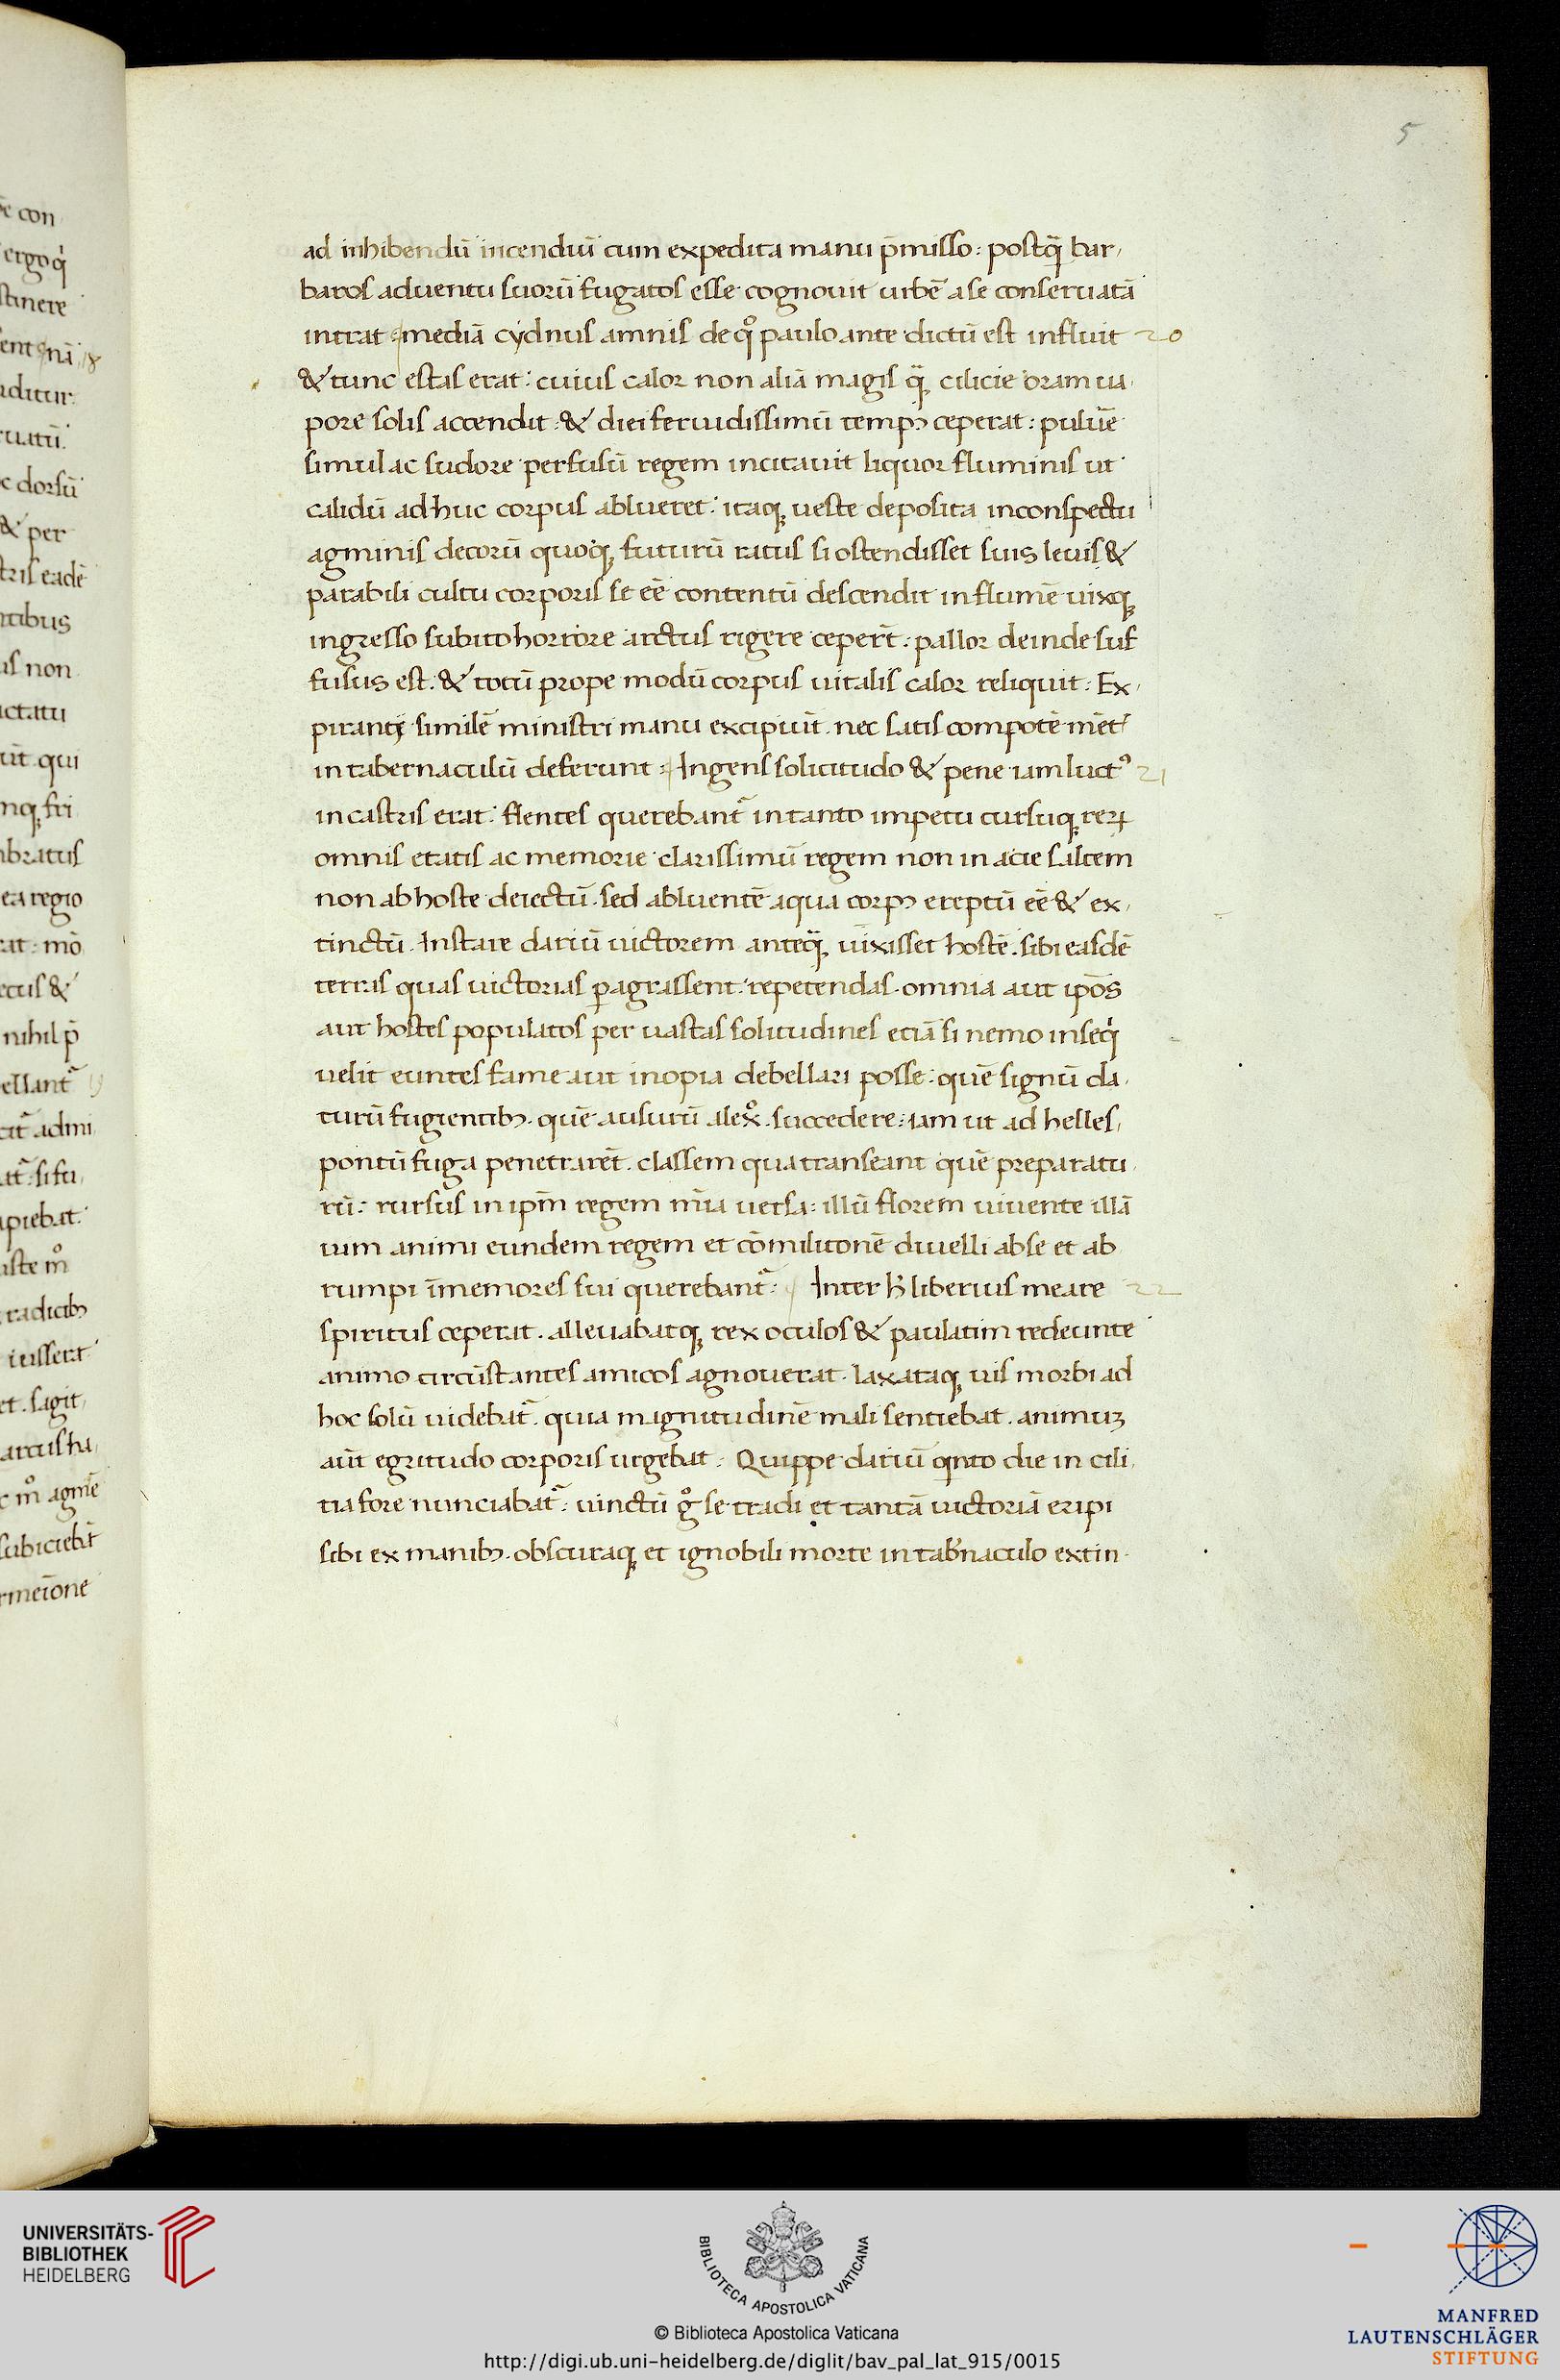 5
ad inhibendū incendiū cum expedita manu p̄misso: postq̄ bar
baros aduentu suorū fugatos esse cognouit urbē a se conseruatā
intrat mediā cydnus amnis de qͦ paulo ante dictū est influit 20
& tunc estas erat: cuius calor non aliā magis q̄ cilicie oram ua
pore solis accendit: & diei feruidissimū tempꝰ ceperat: puluē
simul ac sudore perfusū regem incitauit liquor fluminis ut
calidū adhuc corpus ablueret: itaqꝫ ueste deposita inconspectu
agminis decorū quoqꝫ futurū ratus si ostendisset suis leuis &
parabili cultu corporis se eē contentū descendit in flumē uixqꝫ
ingresso subito horrore artus rigere ceper̄t: pallor deinde suf
fusus est. & totū prope modū corpus uitalis calor reliquit: Ex
pirantꝭ similē ministri manu excipiūt. nec satis compotē mēt
in tabernaculū deferunt: Ingens solicitudo & pene iam luctꝰ 21
in castris erat: flentes querebantᷣ in tanto impetu cursuqꝫ reꝝ
omnis etatis ac memorie clarissimū regem non in acie saltem
non ab hoste deiectū. sed abluentē aqua corpꝰ ereptū eē & ex
tinctū. Instare dariū uictorem anteq̄ uīxisset hostē. sibi easdē
terras quas uictorias ꝑagrassent: repetendas. omnia aut ip̄os
aut hostes populatos per uastas solitudines etiā si nemo inseqͥ
uelit euntes fame aut inopia debellari posse: quē signū da
turū fugientibꝰ. quē ausurū alexͦ. succedere: iam ut ad helles
pontū fuga penetrarēt. classem qua transeant quē preparatu
rū: rursus in ip̄m regem mīa uersa: illū florem iuuente illā
uim animi eundem regem et cōmilitonē diuelli abse et ab
rumpi īmemores sui querebantᷣ: Inter h̄ liberius meare 22
spiritus ceperat. alleuabatqꝫ rex oculos & paulatim redeunte
animo circūstantes amicos agnouerat. laxataqꝫ uis morbi ad
hoc solū uidebatᷣ. quia magnitudinē mali sentiebat. animuꝫ
aūt egritudo corporis urgebat: Quippe dariū qͥnto die in cili
tia fore nunciabatᷣ: uinctū gͦ se tradi et tantā uictoriā eripi
sibi ex manibꝰ. obscuraqꝫ et ignobili morte in tab̄naculo extin
UNIVERSITÄTS-
BIBLIOTHEK
HEIDELBERG
BIBLIOTECA APOSTOLICA VATICANA
© Biblioteca Apostolica Vaticana
http://digi.ub.uni-heidelberg.de/diglit/bav_pal_lat_915/0015
MANFRED
LAUTENSCHLÄGER
STIFTUNG